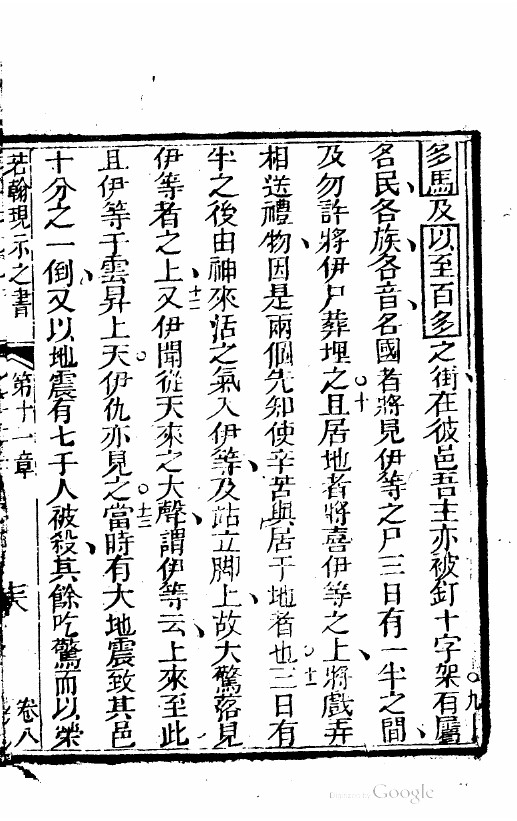 多馬及以至百多之街在彼邑吾主亦被釘十字架○九有屬
名民各族各音名國者將見伊等之尸三日有一半之間
及勿許將伊尸葬埋之○十且居地者將喜伊等之上將戲弄
相送禮物因是兩個先知使辛苦與居于地者也○十一三日有
半之後由神來活之氣入伊等及站立脚上故大驚落見
伊等者之上○十二又伊聞從天來之大聲謂伊等云上來至此
且伊等于雲昇上天伊仇亦見之○十三當時有大地震致其邑
十分之一倒又以地震有七千人被殺其餘吃驚而以榮
若翰現示之書 第十一章 卷八
Digitized by Google